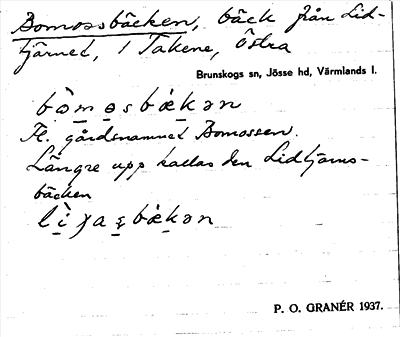 Bomossbäcken, bäck från Lid-
tjärnet, i Takene, Östra
Brunskogs sn, Jösse hd, Värmlands l.
bò̀mosbækən
Jf. gårdsnamnet Bomossen.
Längre upp kallas den Lidtjärns-
bäcken
P. O. GRANÉR 1937.